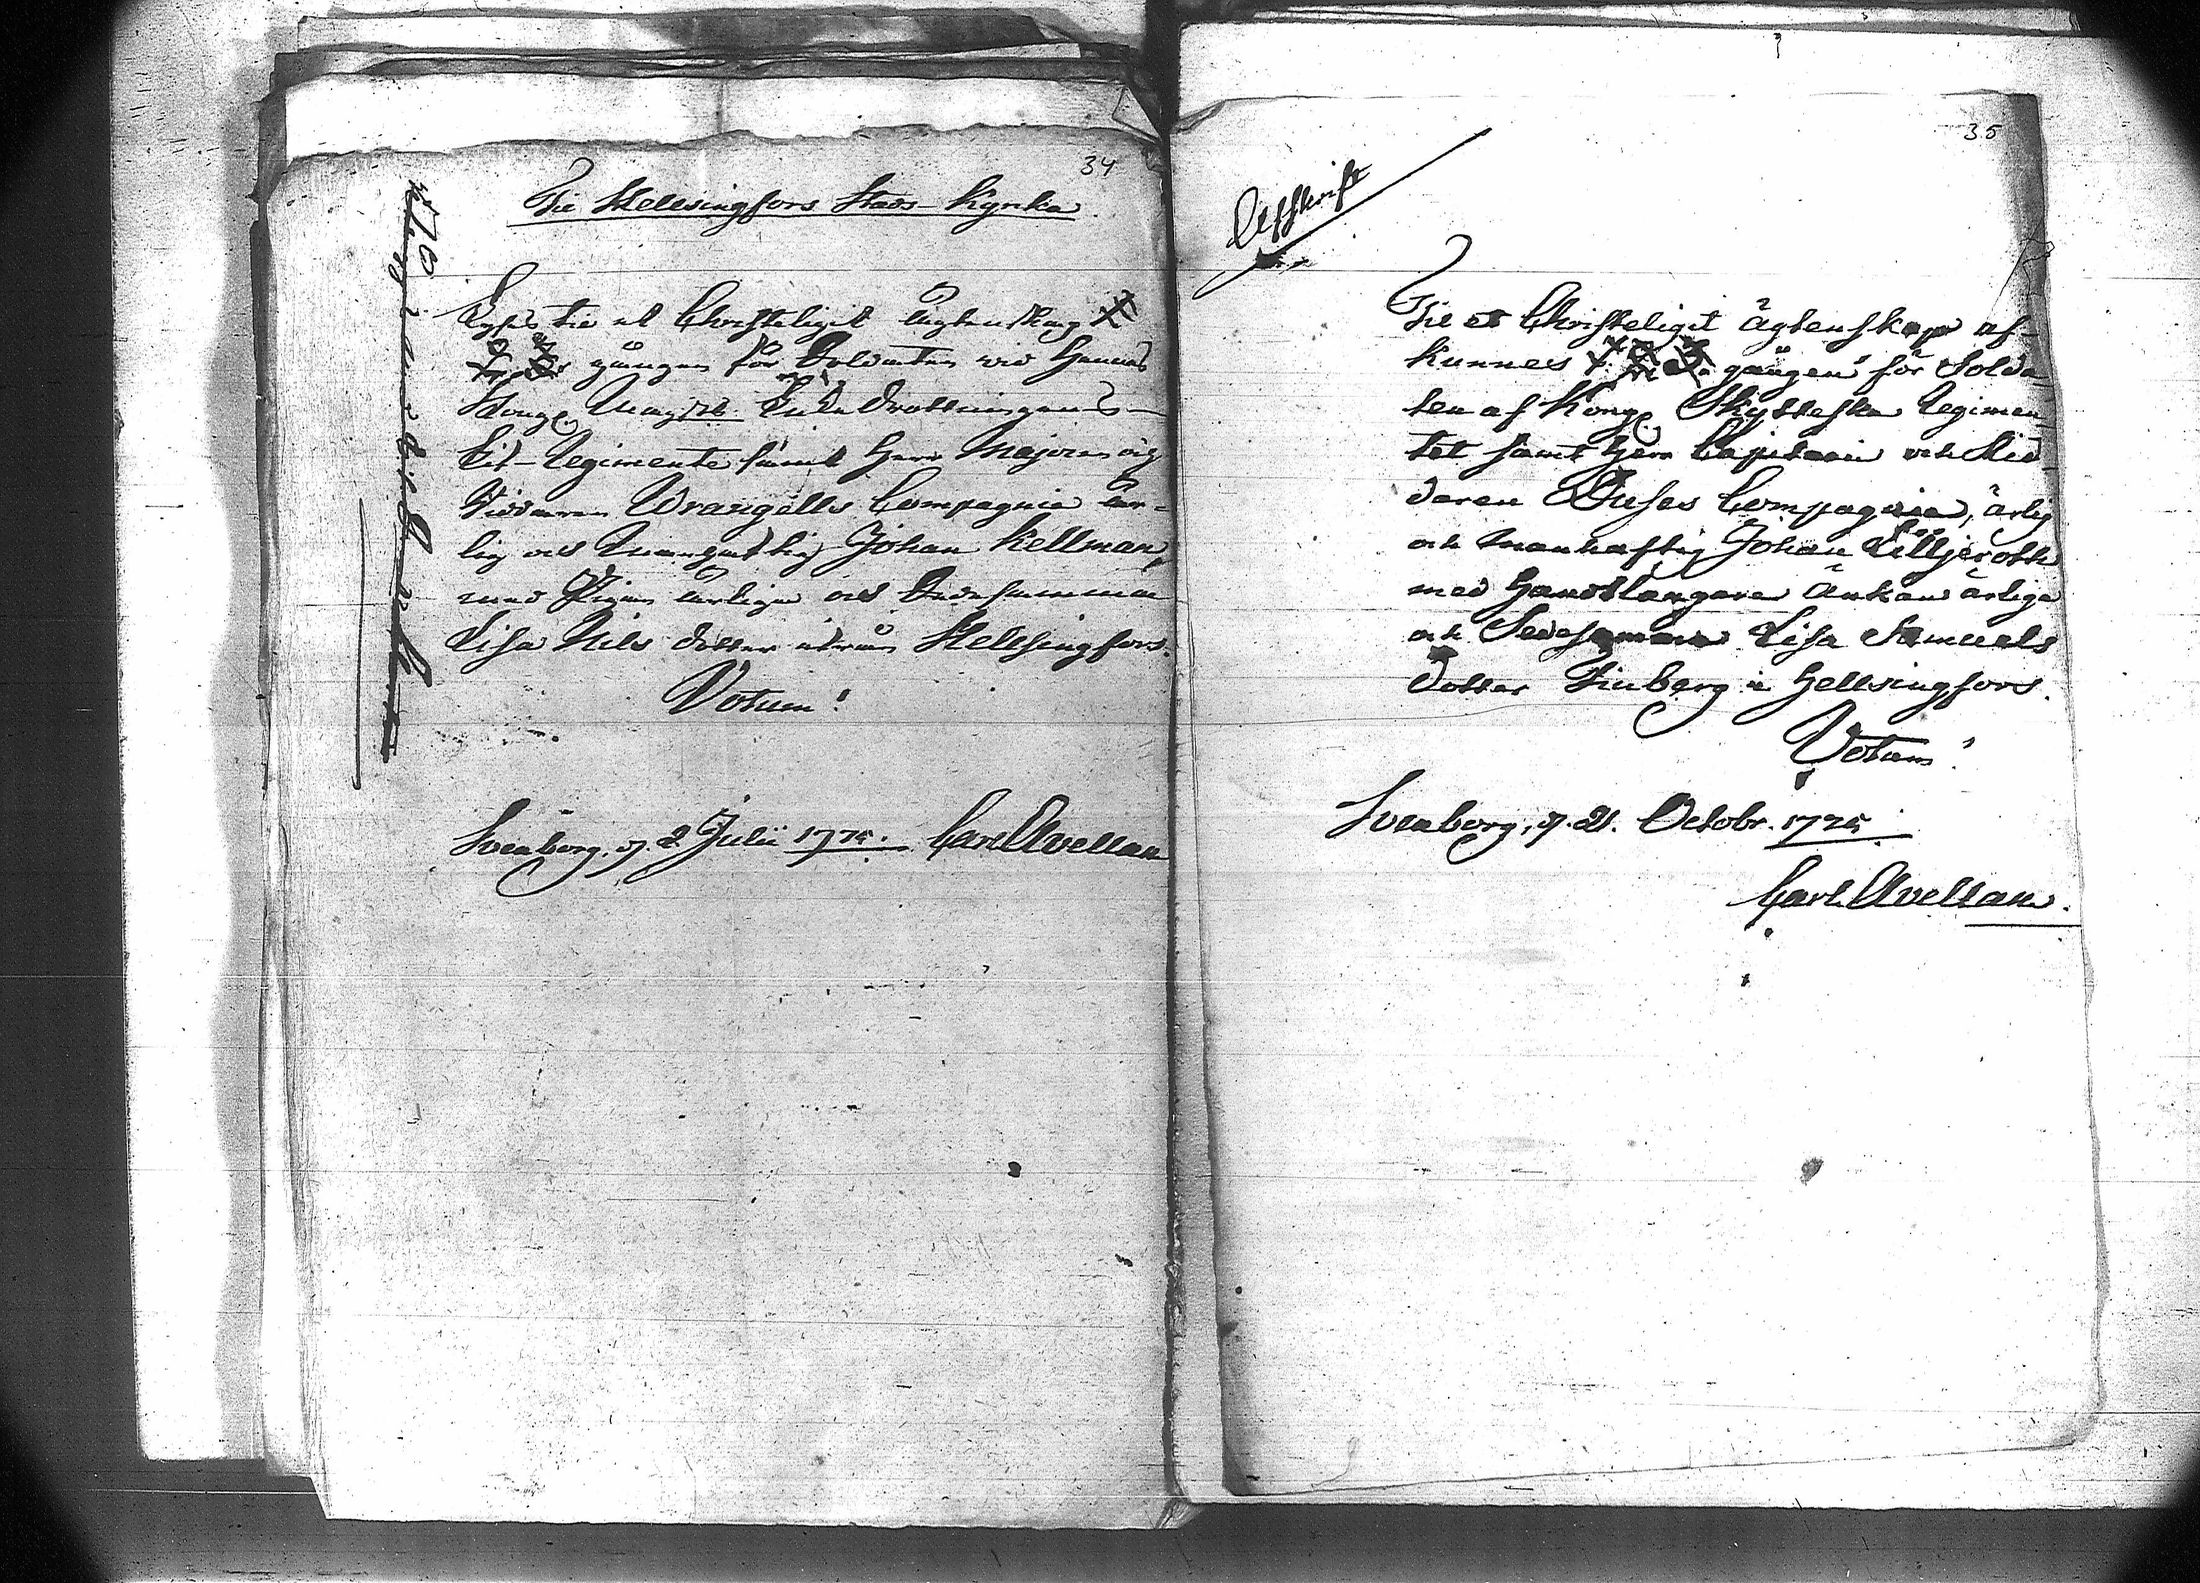 34
Til Hellsingfors Stads-Kyrka.
Lyses til et Christeligit Ägtenskap
gången för Soldaten vid Hennes
Kongl. Maj:ts Enke Drottningens
Lif-Regimente samt Herr Majoren og
Riddaren Wrangells Compagnie är-
lig och Manhaftig Johan Kellman,
med Pigan ärliga och Dydesamma
Lisa Nils dotter ifrån Hellsingfors.
Votum!
Sveaborg, d. 2 Julii 1775. Carl Avellan
35
Afskrift
Til et Christeligit ägtenskap af-
kunnes gången för Solda-
ten af Kongl. Skytteska Regimen-
tet samt Herr Capitain och Rid-
daren Duses Compagnie, ärlig
och manhaftig Johan Lilljeroth
med Handtlangare Änkan ärliga
och Sedesamma Lisa Samuels
dotter Finberg i Hellsingfors.
Votum!
Sveaborg, d. 21. Octobr. 1775.
Carl Avellan.